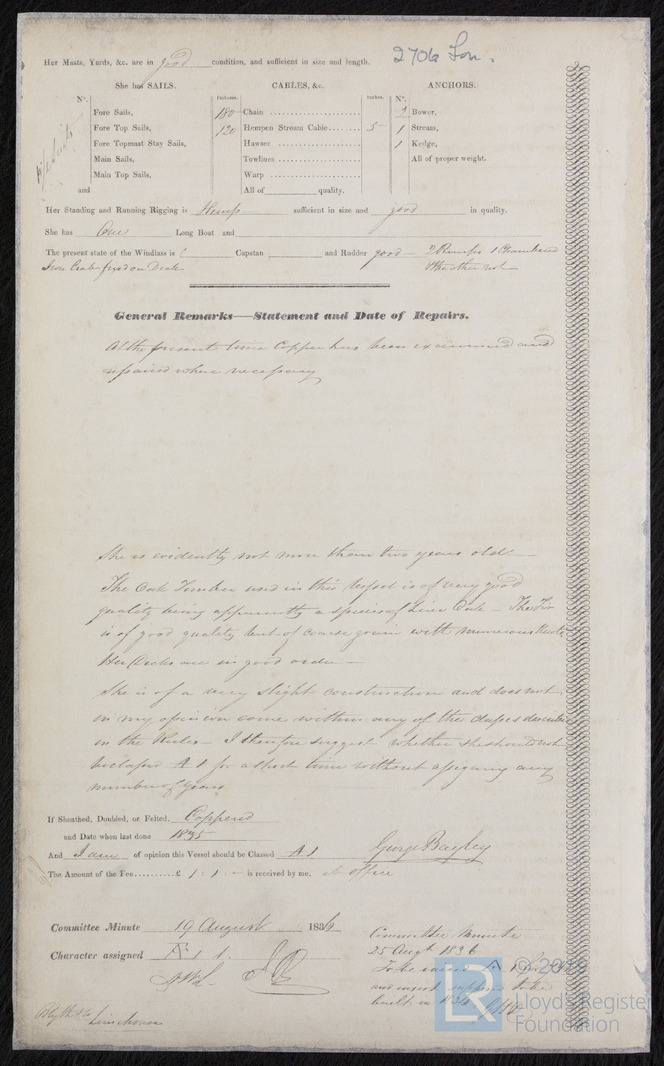 Her Masts, Yards, &c. are in good condition, and sufficient in size and length.
2706 Lon.
She has SAILS.
CABLES, &c.
ANCHORS.
No.
Fathoms.
Inches.
No.
Fore Sails,
180 Chain
2 Bower,
Fore Top Sails,
120 Hempen Stream Cable
5
1 Stream,
Fore Topmast Stay Sails,
Hawser
1 Kedge,
Main Sails,
Towlines
All of proper weight.
Main Top Sails,
Warp
and
All of quality.
Her Standing and Running Rigging is Hemp sufficient in size and good in quality.
She has One Long Boat and
The present state of the Windlass is Capstan and Rudder good — 2 Pumps 1
Iron Crab fixed on Deck
the other not
General Remarks—Statement and Date of Repairs.
At the present time Copper has been examined and
repaired where necessary
She is evidently not more than two years old —
The Oak Timber used in this Vessel is of very good
quality being apparently a species of Live Oak — The Fir
is of good quality but of coarse grain with numerous Knots
Her Decks are in good order —
She is of a very slight construction and does not
in my opinion come within any of the classes described
in the Rules — I therefore suggest whether she should not
be classed A 1 for a short time without assigning any
number of years
If Sheathed, Doubled, or Felted, Coppered
and Date when last done 1835
And I am of opinion this Vessel should be Classed A 1
George Bayley
The Amount of the Fee £ 1 : 1 : — is received by me, at office
Committee Minute 19 August 1836
Character assigned A 1
Committee Minute
25 Augt 1836
To be
and insert supposed to be
built in 1834
Limehouse
© 2019
LR
Lloyd's Register
Foundation